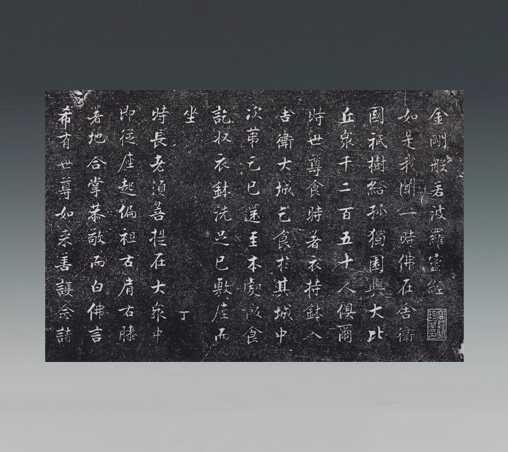 金剛般若波羅蜜經
如是我聞一時佛在舍衛
國祇樹給孤獨園與大比
丘衆千二百五十人俱爾
時世尊食時著衣持鉢入
舍衛大城乞食於其城中
次第乞已還至本處飯食
訖收衣鉢洗足已敷座而
坐
時長老須菩提在大衆中
丁
即從座起偏袒右肩右膝
著地合掌恭敬而白佛言
希有世尊如來善護念諸